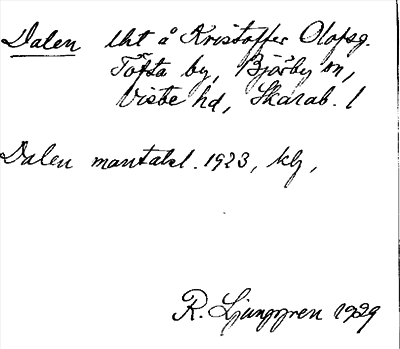 Dalen lht å Kristoffer Olofsg.
Töfta by, Bjärby sn,
Viste hd, Skarab. l
Dalen mantalsl. 1923, klg,
R. Ljunggren 1929